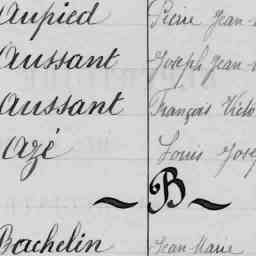 Aupied Pierre Jean
Aussant Joseph Jean
Aussant François Victo
Azé Louis Jose
~ B ~
Bachelin Jean Marie